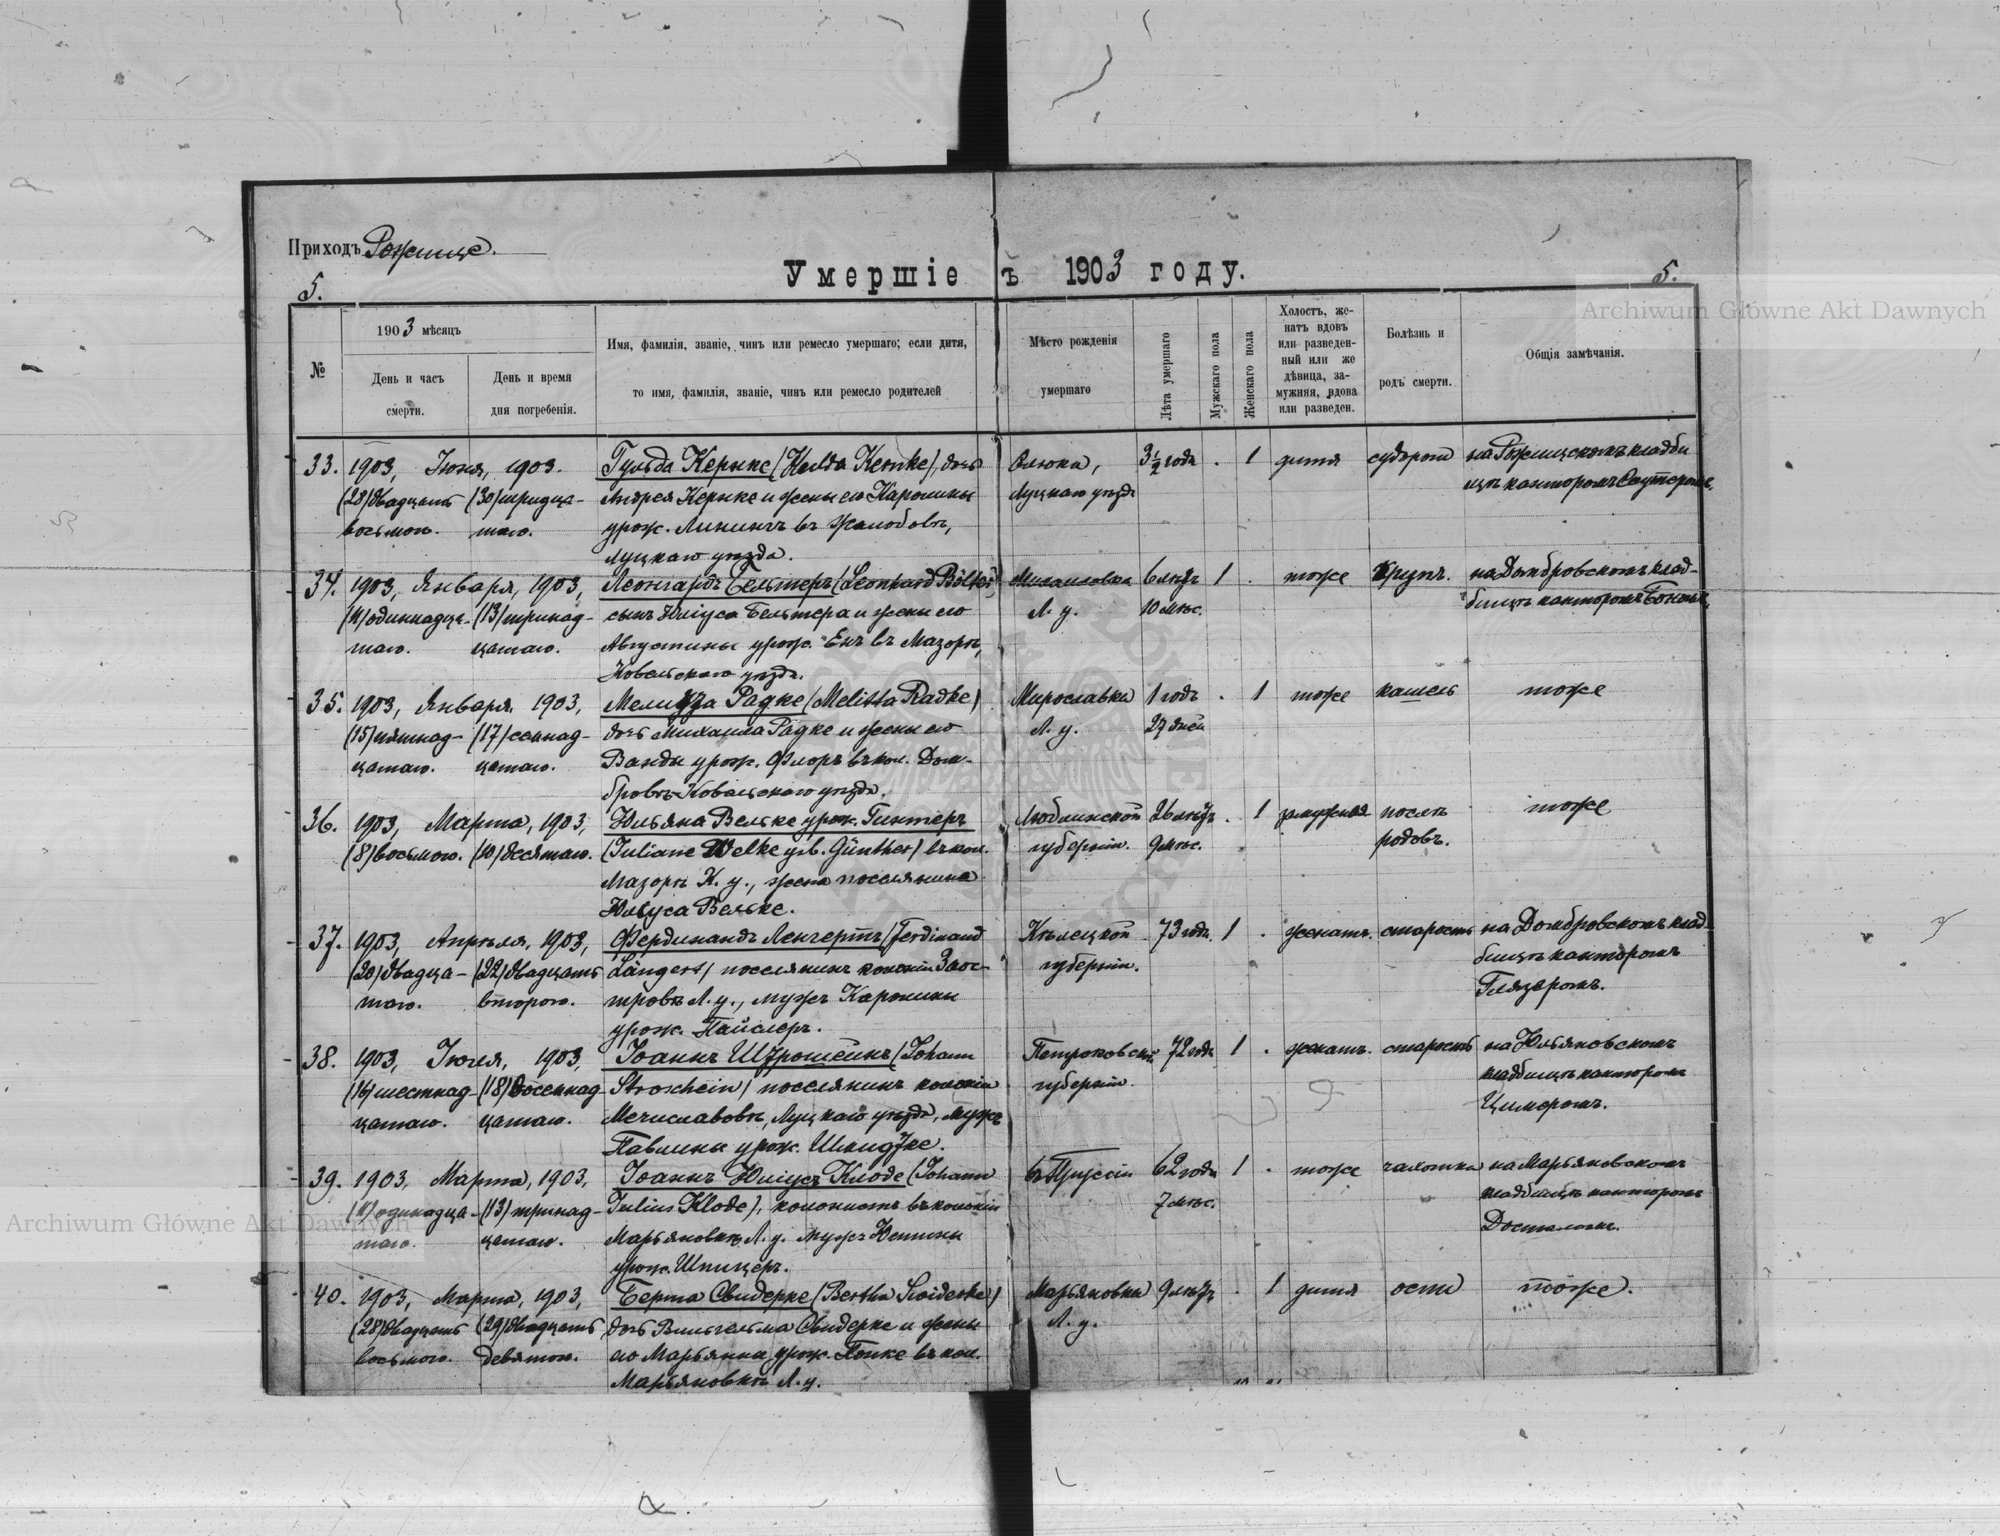 Приходъ Рожище.
Умершіе въ 1903 году.
5.
5.
Archiwum Główne Akt Dawnych
№
1903 мѣсяцъ
День и часъ
смерти.
День и время
дня погребенія.
Имя, фамилія, званіе, чинъ или ремесло умершаго; если дитя,
то имя, фамилія, званіе, чинъ или ремесло родителей
Мѣсто рожденія
умершаго
Лѣта умершаго
Мужскаго пола
Женскаго пола
Холостъ, же-
натъ вдовъ
или разведен-
ный или же
дѣвица, за-
мужняя, вдова
или разведен.
Болѣзнь и
родъ смерти.
Общія замѣчанія.
33. 1903, Іюня, 1903. Гульда Кернке (Hulda Kernke), дочь 3½ года . 1 дитя судороги на Рожищскомъ кладби
(28) двадцать (30) тридца- Андрея Кернке и жены его Каролины Луцкаго уѣзда щѣ канторомъ
восьмого. таго. урож. въ Жалобовѣ,
Луцкаго уѣзда.
34. 1903, Января, 1903, Леонгардъ Бельтеръ (Leonhard Bölter) 6 лѣтъ 1 . тоже крупъ. на Домбровскомъ клад-
(11) одиннадца- (13) тринад- сынъ Юліуса Бельтера и жены его Л. у. 10 мѣс. бищѣ канторомъ
таго. цатаго. Августины урож. Енъ въ Мазорѣ,
Ковельскаго уѣзда.
35. 1903, Января, 1903, Мелитта Радке (Melitta Radke) Мирославка 1 годъ . 1 тоже кашель тоже
(15) пятнад- (17) семнад- дочь Михаила Радке и жены его Л. у. 27 дней
цатаго. цатаго. Ванды урож. Флоръ въ кол. Дом-
бровѣ Ковельскаго уѣзда.
36. 1903, Марта, 1903, Юльяна Вельке урож. Гинтеръ Люблинской 26 лѣтъ . 1 замужняя послѣ тоже
(8) восьмого. (10) десятаго. (Juliane Welke geb. Günther) въ кол. губерніи. 9 мѣс. родовъ.
Мазорѣ К. у., жена поселянина
Юліуса Вельке.
37. 1903, Апрѣля, 1903, Фердинандъ Ленгертъ (Ferdinand Кѣлецкой 73 года 1 . женатъ. старость на Домбровскомъ клад-
(20) двадца- (22) двадцать Längert) поселянинъ колоніи Заос- губерніи. бищѣ канторомъ
таго. второго. тровѣ Л. у., мужъ Каролины Глязеромъ.
урож. Пайслеръ.
38. 1903, Іюля, 1903, Іоаннъ Штрошейнъ (Johann Петроковской 72 года 1 . женатъ. старость на Юльяновскомъ
(16) шестнад- (18) восемнад- Stroschein) поселянинъ колоніи губерніи. кладбищѣ канторомъ
цатаго. цатаго. Мечиславовкѣ, Луцкаго уѣзда, мужъ Цимеромъ.
Павлины урож. Шмидтке.
39. 1903, Марта, 1903, Іоаннъ Юліусъ Клоде (Johann въ Пруссіи 62 года 1 . тоже чахотка на Марьяновскомъ
(11) одинадца- (13) тринад- Julius Klode), колонистъ въ колоніи 7 мѣс. кладбищѣ канторомъ
таго. цатаго. Марьяновкѣ Л. у. мужъ Юстины
урож. Шпицеръ.
40. 1903, Марта, 1903, Берта Свидерке (Bertha Swiderke) Марьяновка 9 лѣтъ . 1 дитя оспа тоже.
(28) двадцать (29) двадцать дочь Вильгельма Свидерке и жены Л. у.
восьмого. девятого. его Марьянны урож. Попке въ кол.
Марьяновкѣ Л. у.
Archiwum Główne Akt Dawnych